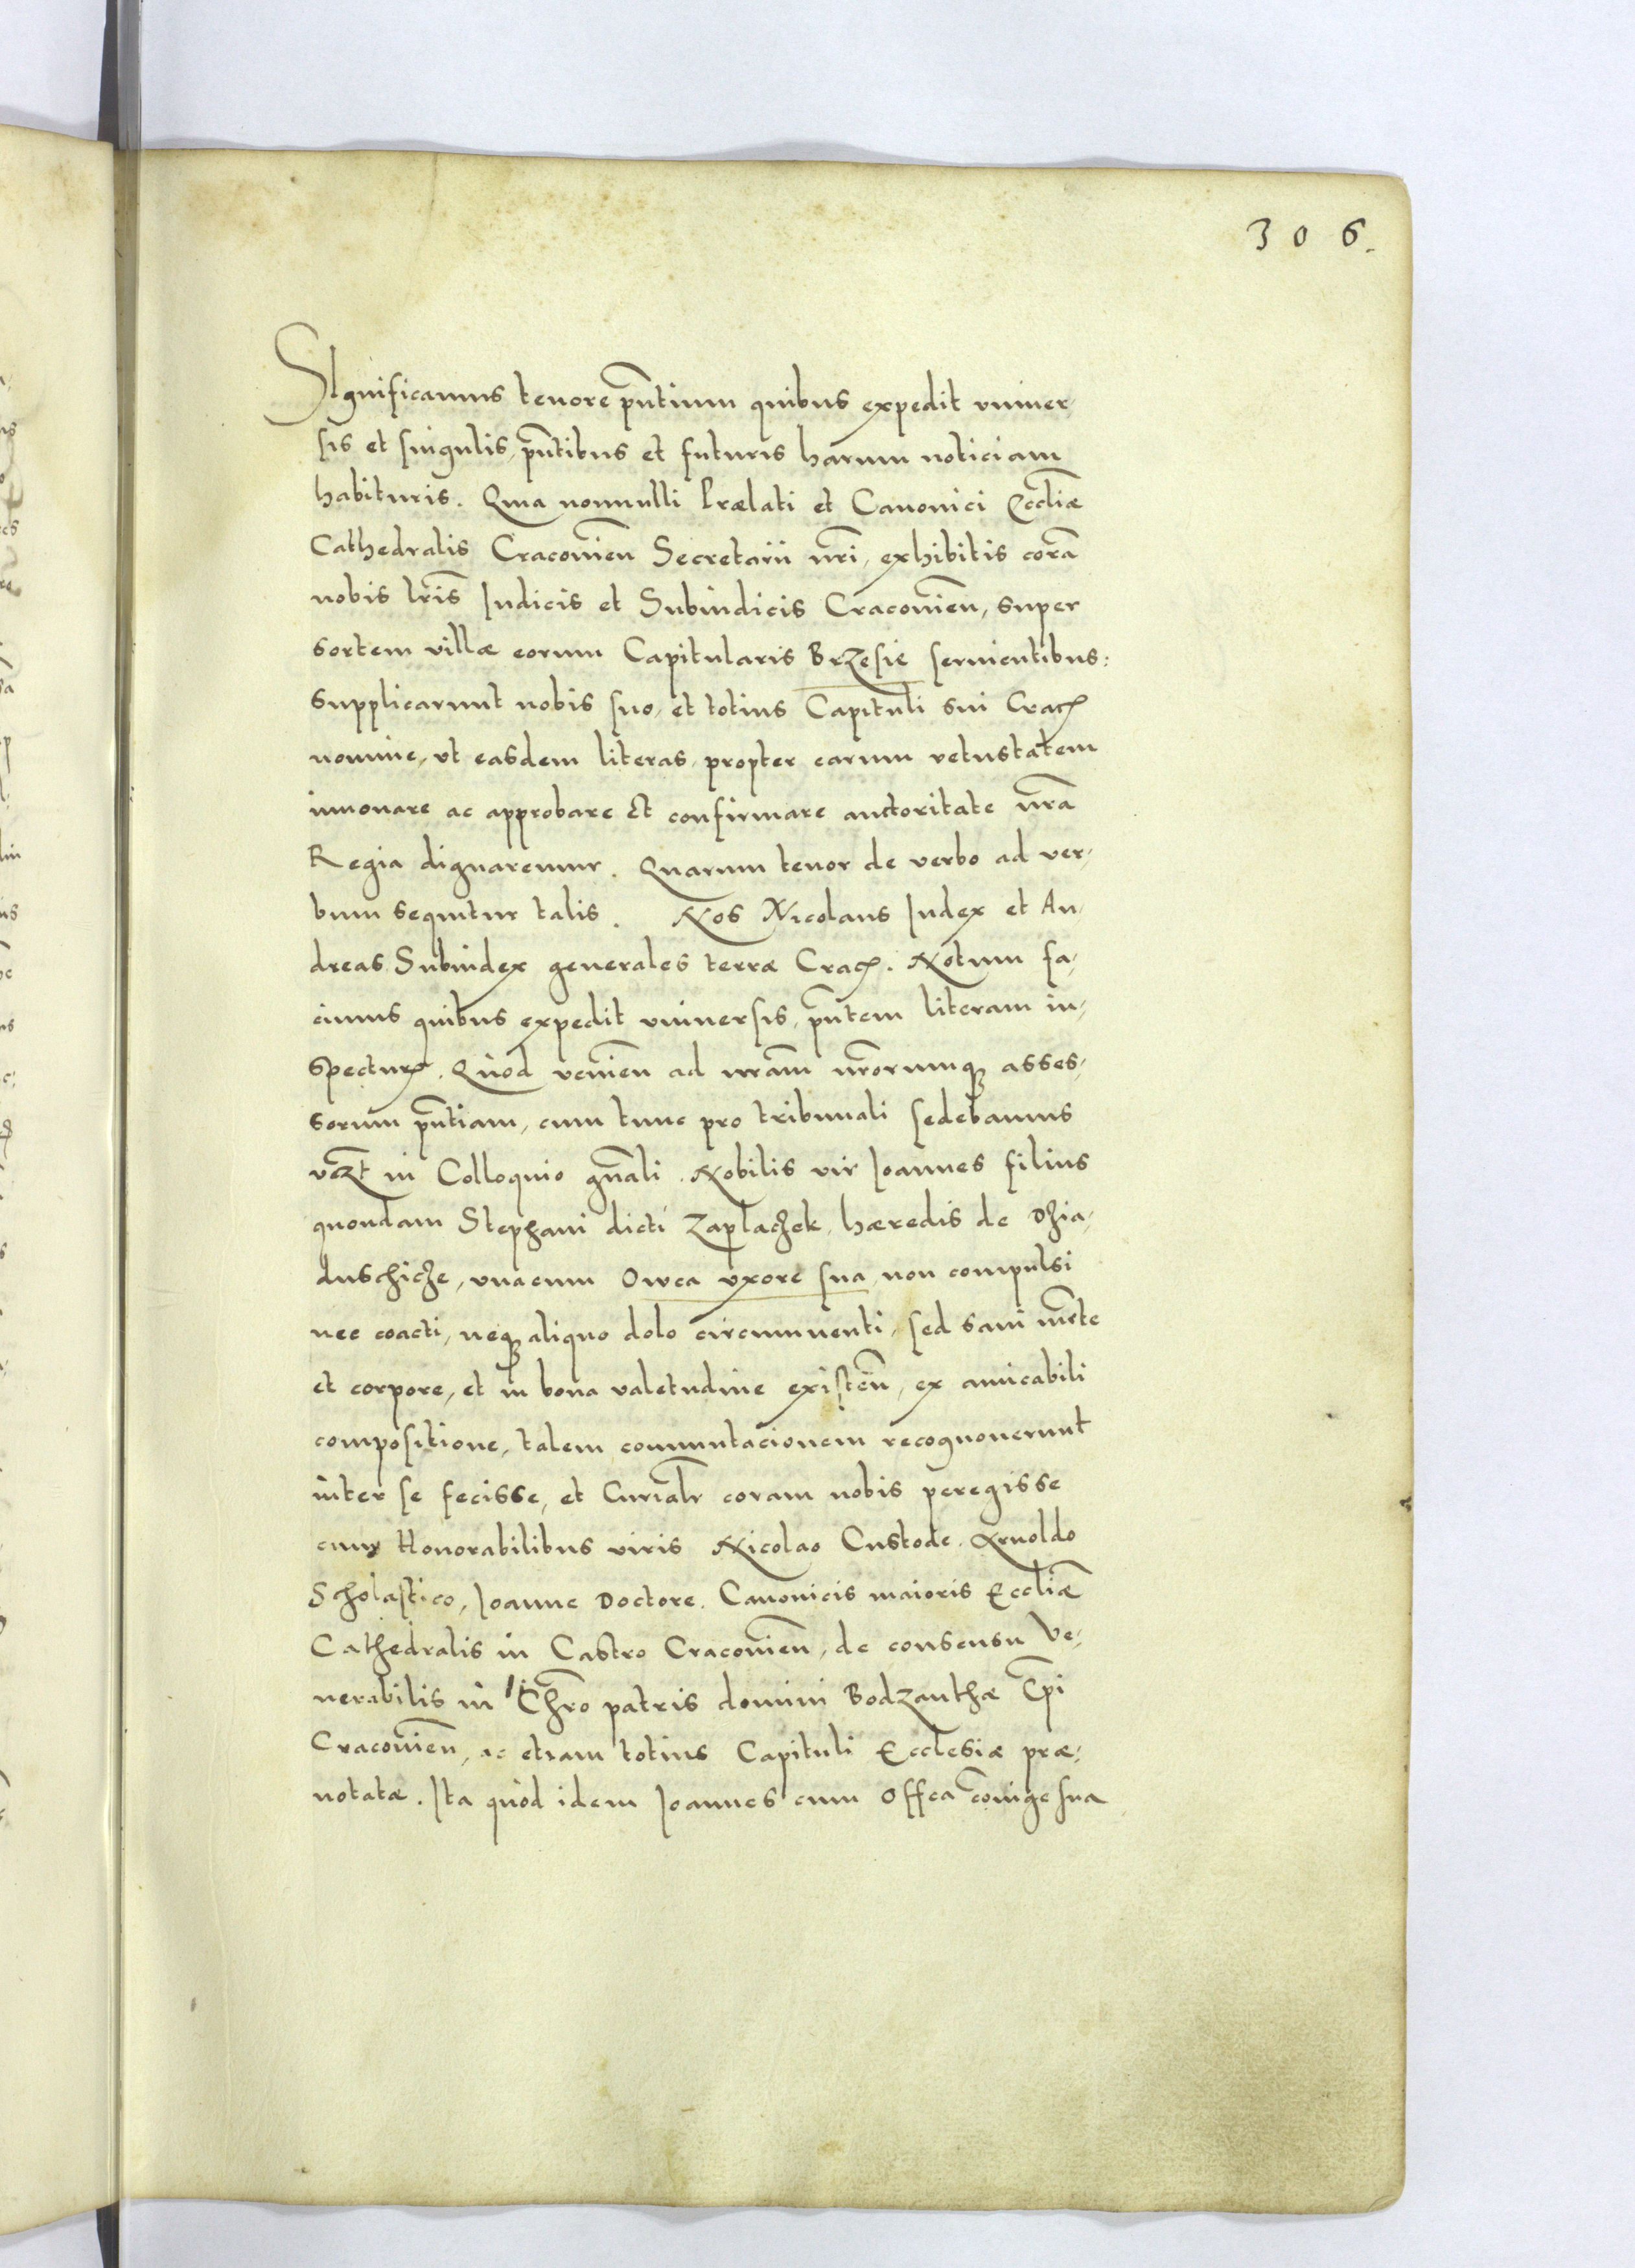 306.
SIgnificamus tenore pñtium quibus expedit vniuer,
sis et singulis, pñtibus et futuris harum noticiam
habituris. Quia nonnulli Prælati et Canonici Eccliæ
Cathedralis Cracovieñ Secretarii nri, exhibitis corã
nobis lris Iudicis et Subiudicis Cracovieñ, super
sortem villæ eorum Capitularis Brzesie seruientibus:
supplicarunt nobis suo, et totius Capituli sui Crac̃
nomine, vt easdem literas propter earum vetustatem
innouare ac approbare Et confirmare auctoritate nrã
Regia dignaremur. Quarum tenor de verbo ad ver,
bum sequitur talis. Nos Nicolaus Iudex et An,
dreas Subiudex generales terræ Crac̃. Notum fa,
cimus quibus expedit vniuersis, pñtem literam in,
specturis. Quòd venieñ ad nrãm nrõrumq; asses,
sorum pñtiam, cum tunc pro tribunali sedebamus
vczt in Colloquio gñali. Nobilis vir Ioannes filius
quondam Stephani dicti Zaplachek, hæredis de Dzia,
duschicze, vnacum Owca vxore sua, non compulsi
nec coacti, neq; aliquo dolo circumuenti, sed sani mẽte
et corpore, et in bona valetudine existeñ, ex amicabili
compositione, talem commutacionem recognouerunt
inter se fecisse, et Curialr coram nobis peregisse
cum Honorabilibus viris Nicolao Custode, Arnoldo
Scholastico, Ioanne Doctore. Canonicis maioris Eccliæ
Cathedralis in Castro Cracovieñ, de consensu Ve,
nerabilis in Chro patris domini Bodzanthæ Epi
Cracovieñ, ac etiam totius Capituli Ecclesiæ præ,
notatæ. Ita quòd idem Ioannes cum Offca cõiuge sua